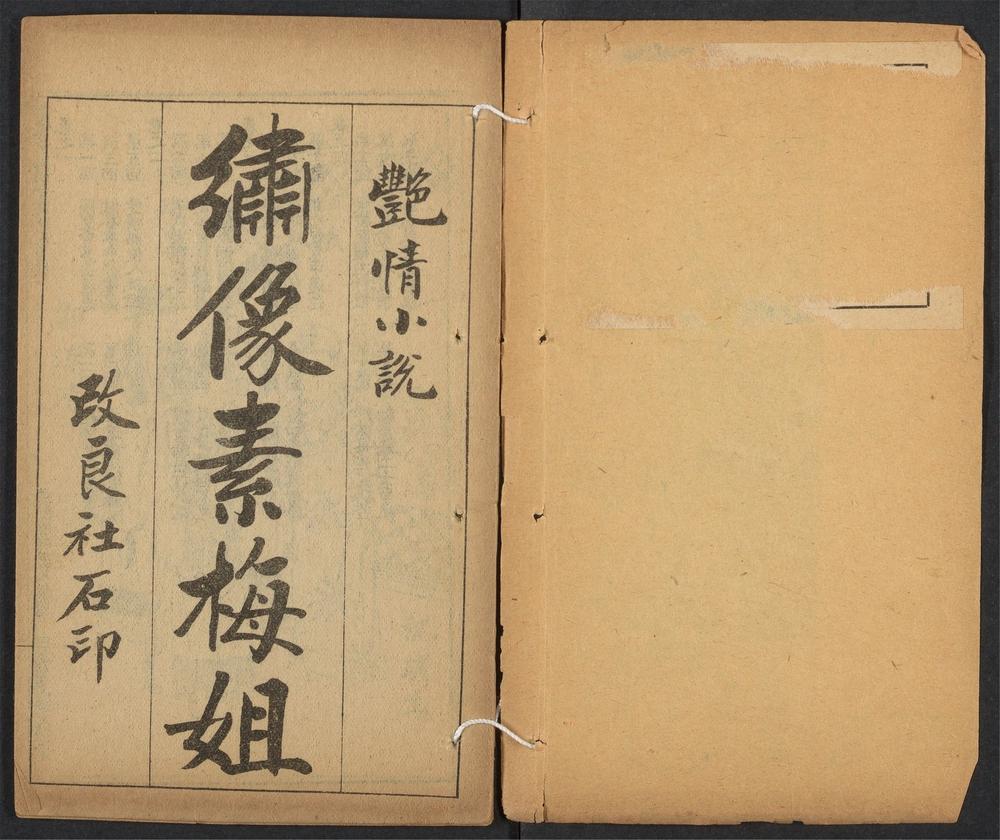 艷情小說
繡像素梅姐
改良社石印